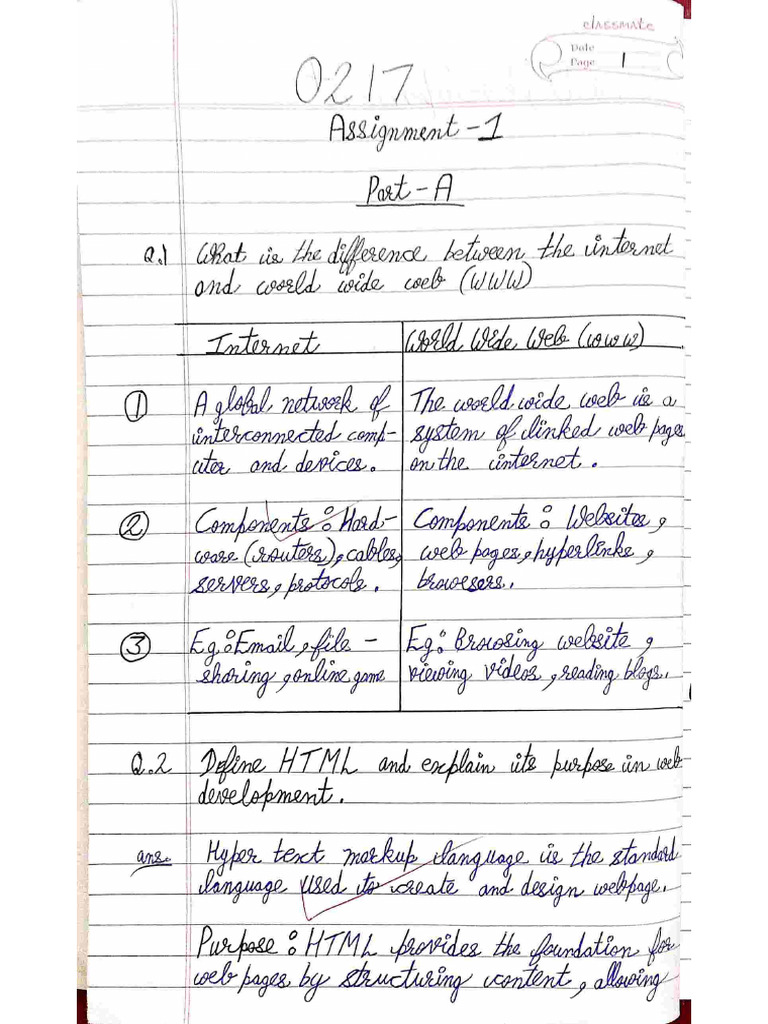 classmate
Date
Page 1
0217
Assignment - 1
Part - A
Q.1 What is the difference between the internet
and world wide web (WWW)
Internet World Wide Web (www)
① A global network of The world wide web is a
interconnected comp- system of linked web pages
uter and devices. on the internet.
② Components : Hard- Components : Websites,
ware (routers), cables, web pages, hyperlinks,
servers, protocols. browsers.
③ Eg : Email, file - Eg : Browsing website,
sharing, online game viewing videos, reading blogs.
Q.2 Define HTML and explain its purpose in web
development.
ans. Hyper text markup language is the standard
language used to create and design webpage.
Purpose : HTML provides the foundation for
web pages by structuring content, allowing